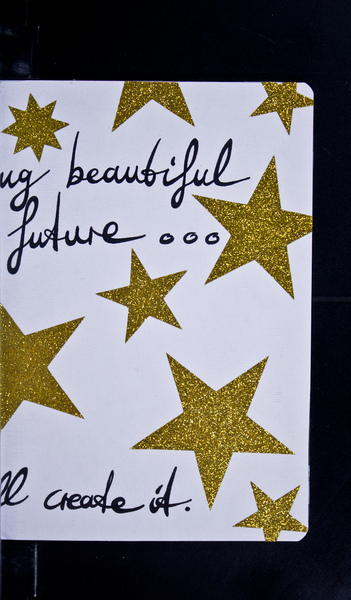 ng beautiful
future ...
ll create it.